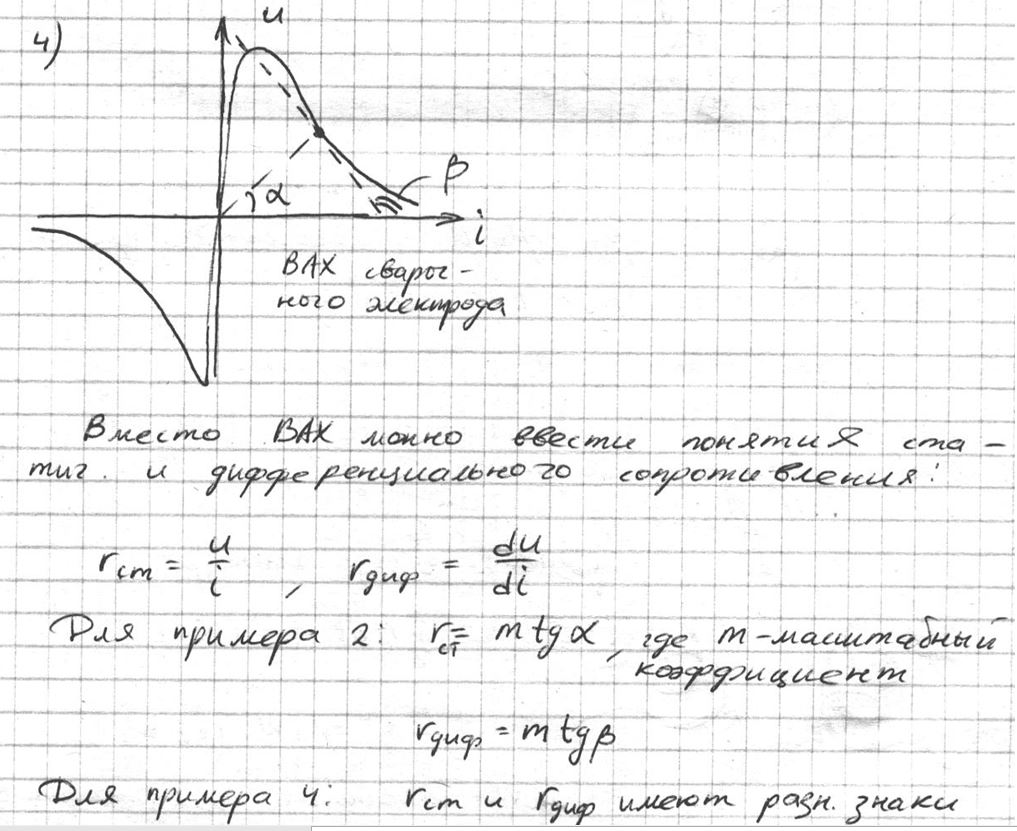 4)
u
α
β
i
ВАХ свароч-
ного электрода
Вместо ВАХ можно ввести понятия ста-
тич. и дифференциального сопротивления:
rст = u/i , rдиф = du/di
Для примера 2: rст = m tgα, где m-масштабный
коэффициент
rдиф = m tgβ
Для примера 4: rст и rдиф имеют разн. знаки